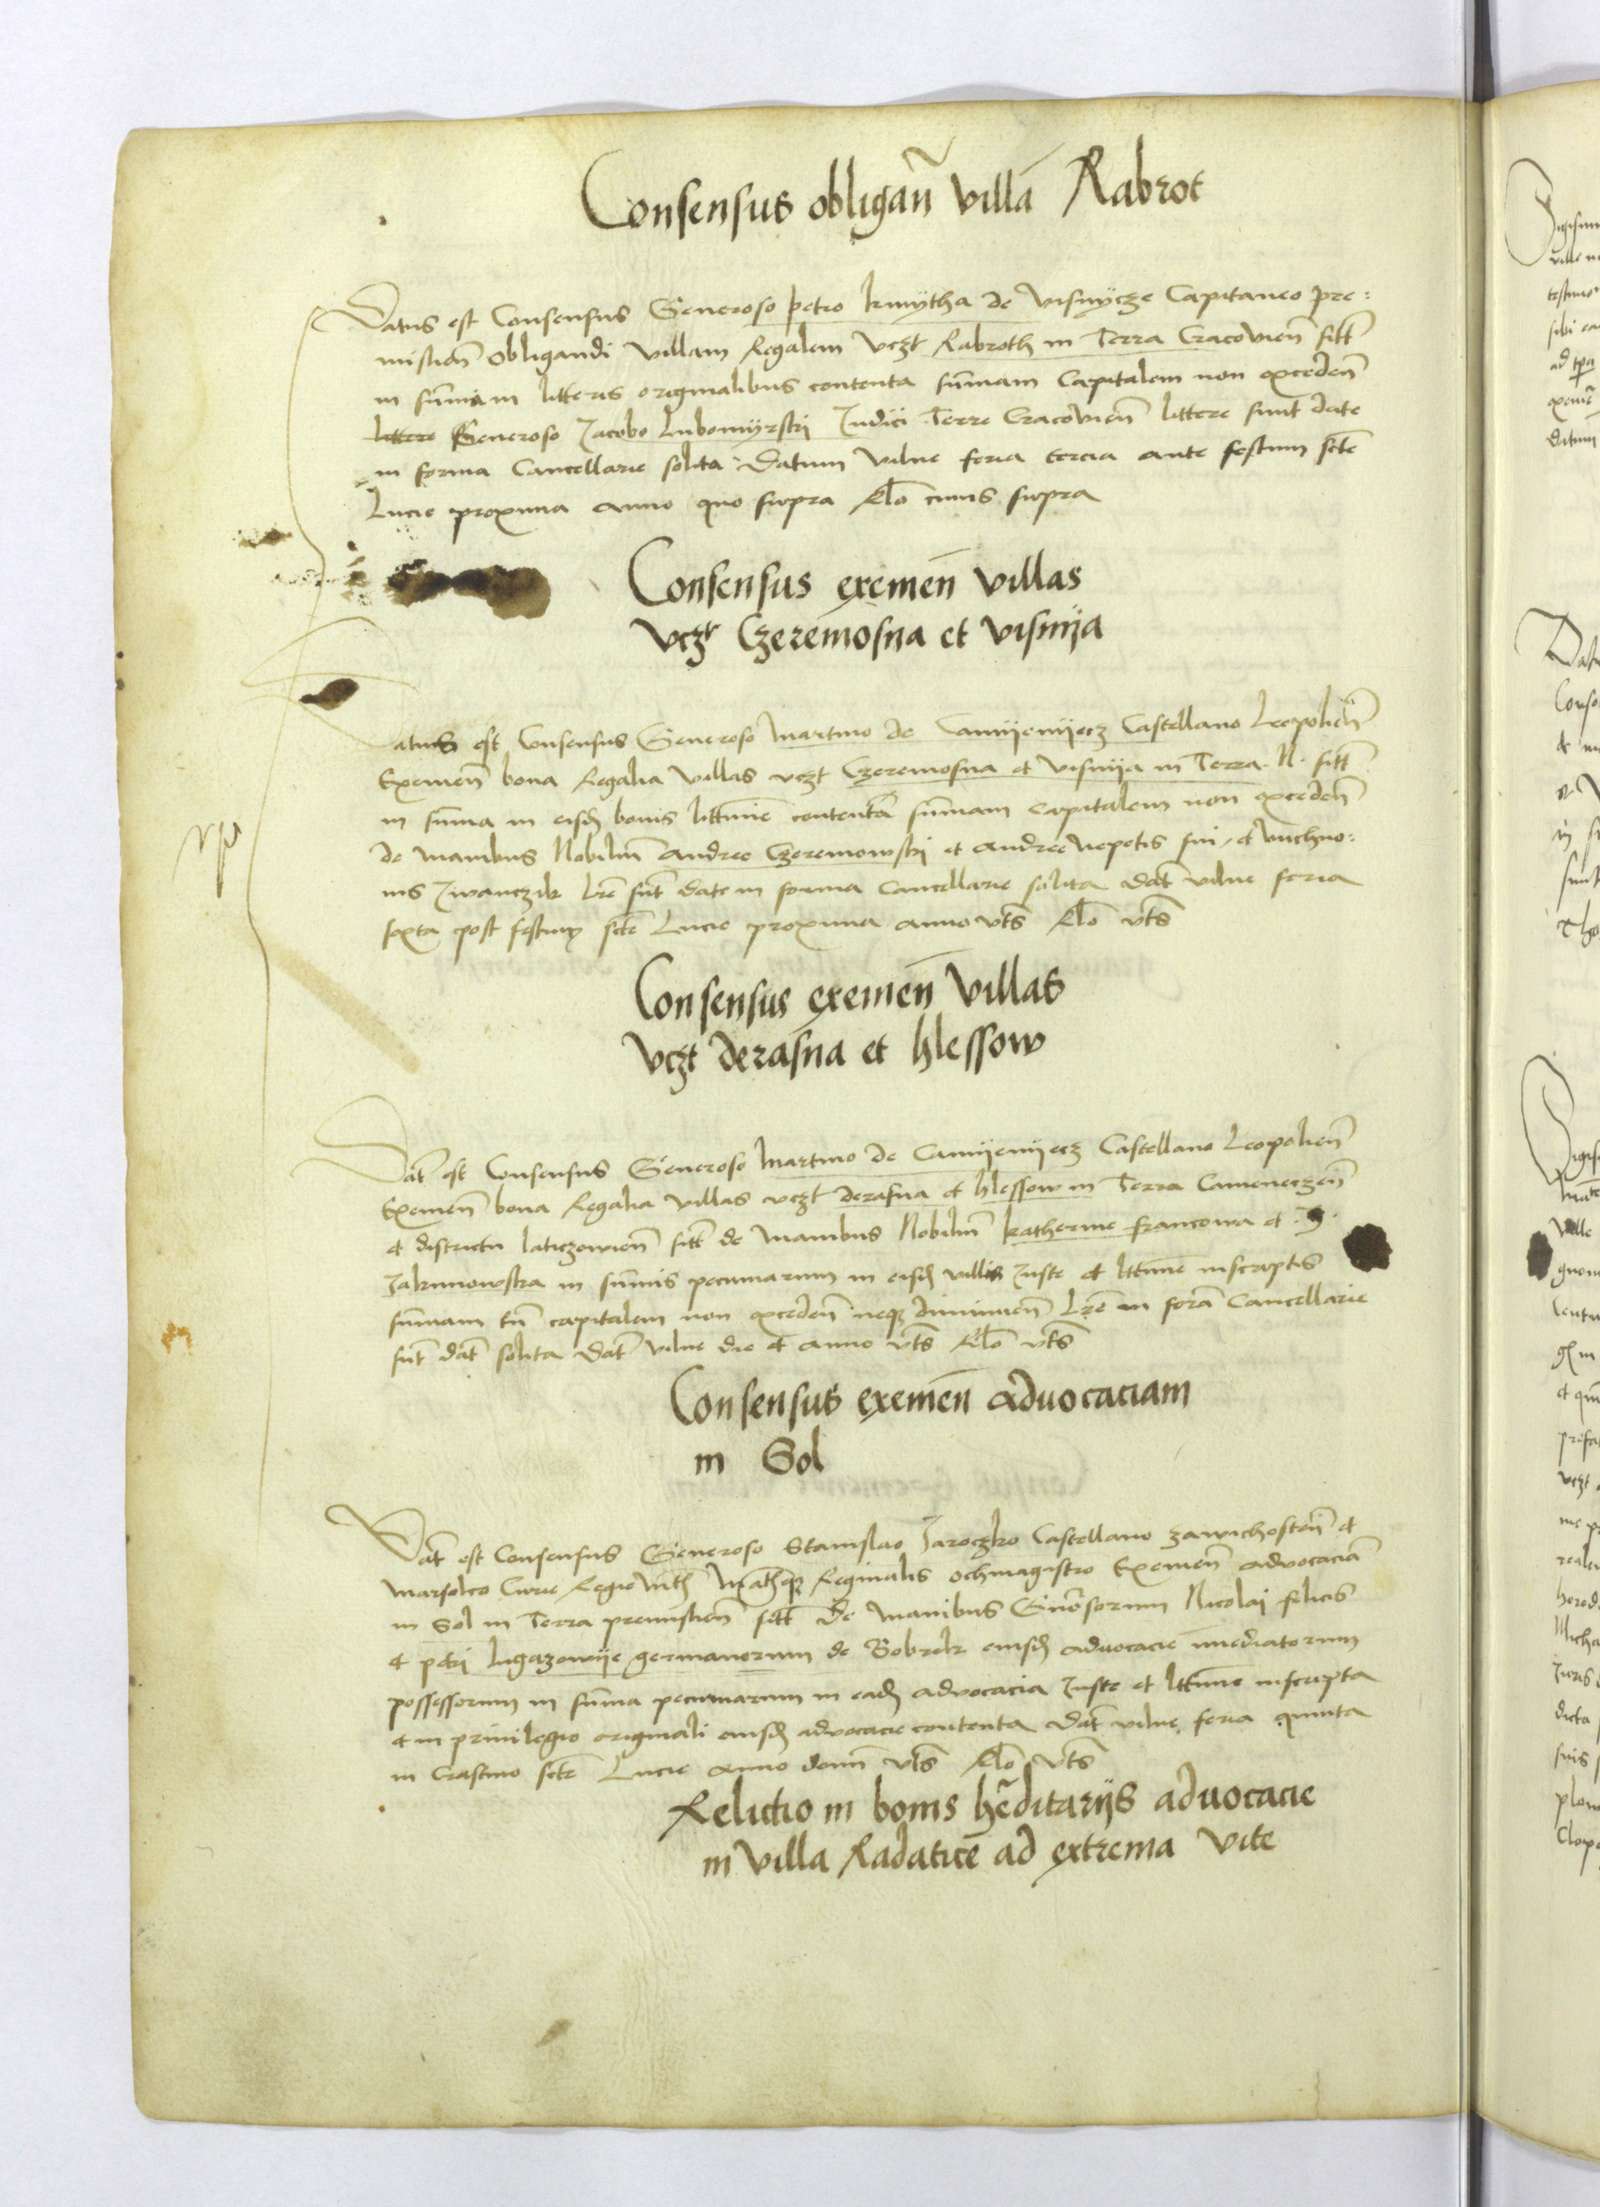 Consensus obligan̄ villā Rabrot
Datus est Consensus Generoso petro kmÿtha de visnÿcze Capitaneo pre:
mislien̄ obligandi villam Regalem vczt Rabroth in Terra Cracovien̄ sitt̄
in sum̄am in litteris originalibus contenta sum̄am Capitalem non exceden̄
littere Generoso Jacobo Lubomÿrski Judici Terre Cracovien̄ littere sunt date
in forma Cancellarie solita Datum vilne feria tercia ante festum sctē
Lucie proxima anno quo supra Rlō cuius supra
Consensus exemen̄ villas
vczt Czeremosna et visnÿa
Datus est Consensus Generoso Martino de Camÿenÿecz Castellano Leopolien̄
Exemen̄ bona Regalia villas vczt Czeremosna et visnÿa in Terra N. sitt̄
in sum̄a in eisd bonis littime contentā sum̄am capitalem non exceden̄
de manibus Nobiliū Andree Czeremowski et Andree nepotis sui et
Iwanczik Lrē sūt date in forma Cancellarie solita dat̄ vilne feria
sexta post festum sctē Lucie proxima anno vts̄ Rlō vts̄
Consensus exemen̄ villas
vczt derasna et hlessow
Dat̄ est Consensus Generoso Martino de Camÿenÿecz Castellano Leopolien̄
Exemen̄ bona Regalia villas vczt derasna et hlessow in Terra Cameneczen̄
et districtu laticzowien̄ sitt̄ de manibus Nobiliū katherine francowa et
Jakimowska in sum̄is pecuniarum in eisd villis Juste et littime inscriptis
sum̄am tn̄ capitalem non exceden̄ neqz diminuen̄ Lrē in forā Cancellarie
sūt dat̄ solita dat̄ vilne die et anno vts̄ Rlō vts̄
Consensus exemen̄ advocaciam
in Sol
Dat̄ est Consensus Generoso Stanislao Jaroczko Castellano zawichosten̄ et
Marsalco Curie Regie Mth̄ Reginalis ochmagistro Exemen̄ advocaciā
in Sol in Terra premislien̄ sitt̄ de manibus Gn̄orsorum Nicolai felicis
et petri ligazowÿe germanorum de Bobrek eiusd advocacie im̄ediatorum
possessorum in sum̄a pecuniarum in eadē advocacia Juste et littime inscripta
et in privilegio originali eiusd advocacie contenta dat̄ vilne feria quinta
in Crastino sctē Lucie anno domī vts̄ Rlō vts̄
Relictio in bonis hēditariÿs advocacie
in villa Radaticē ad extrema vite